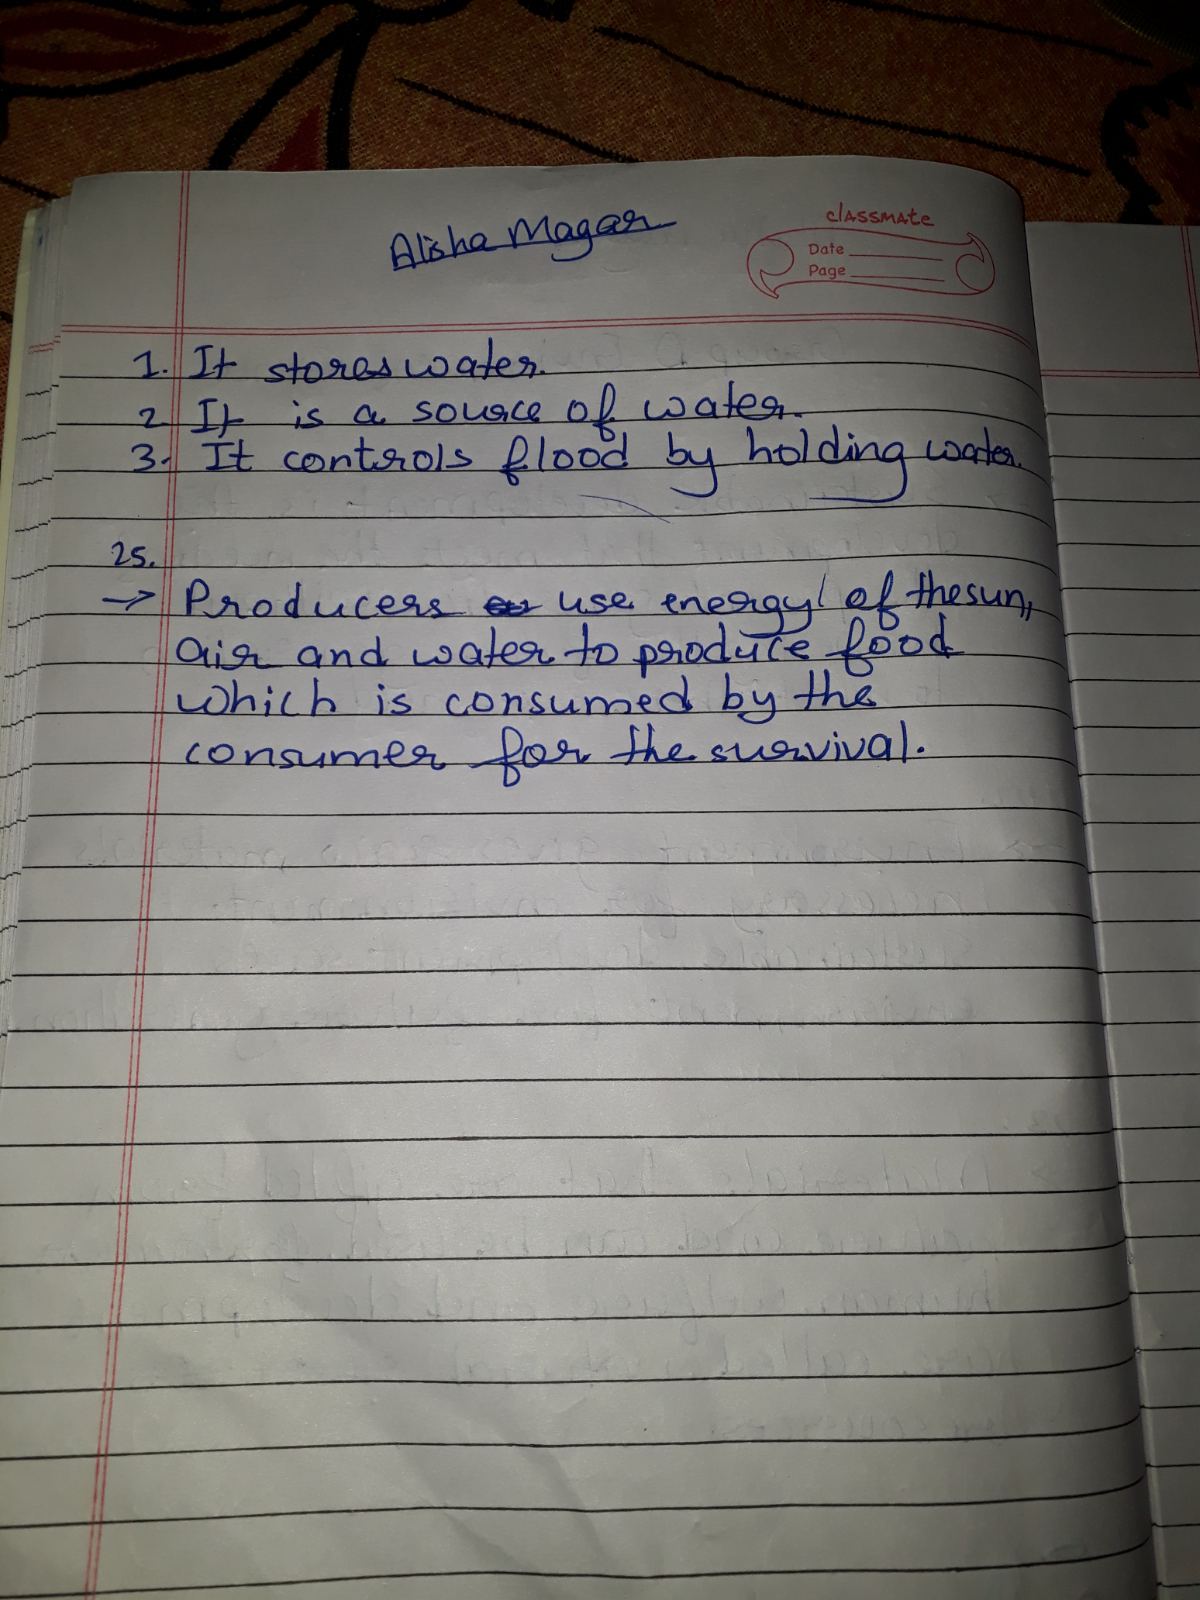 Alisha Magar
classmate
Date
Page
1. It stores water.
2. It is a source of water.
3. It controls flood by holding water.
25.
→ Producers use energy of the sun,
air and water to produce food
which is consumed by the
consumer for the survival.